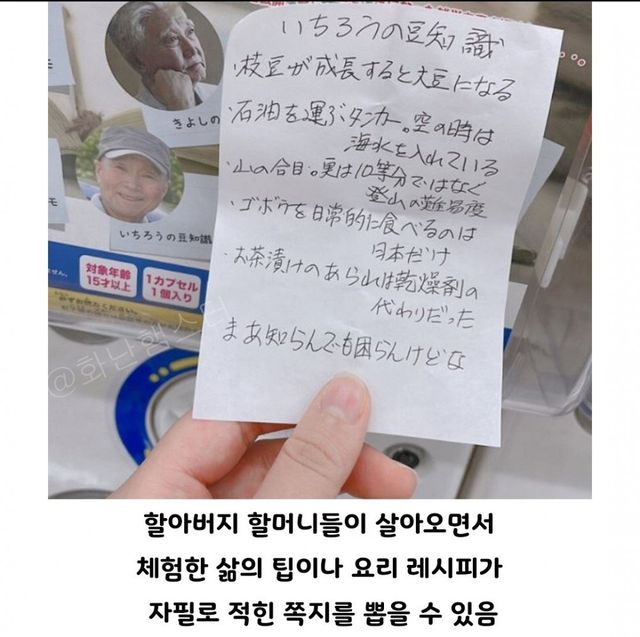 いちろうの豆知識
・枝豆が成長すると大豆になる
・石油を運ぶタンカー。空の時は
海水を入れている
・山の合目。実は10等分ではなく
登山の難易度
・ゴボウを日常的に食べるのは
日本だけ
・お茶漬けのあられは乾燥剤の
代わりだった
まあ知らんでも困らんけどな
モ
きよしの
モ
いちろうの豆知識
対象年齢
15才以上
1カプセル
1個入り
@화난햄스터
할아버지 할머니들이 살아오면서
체험한 삶의 팁이나 요리 레시피가
자필로 적힌 쪽지를 뽑을 수 있음